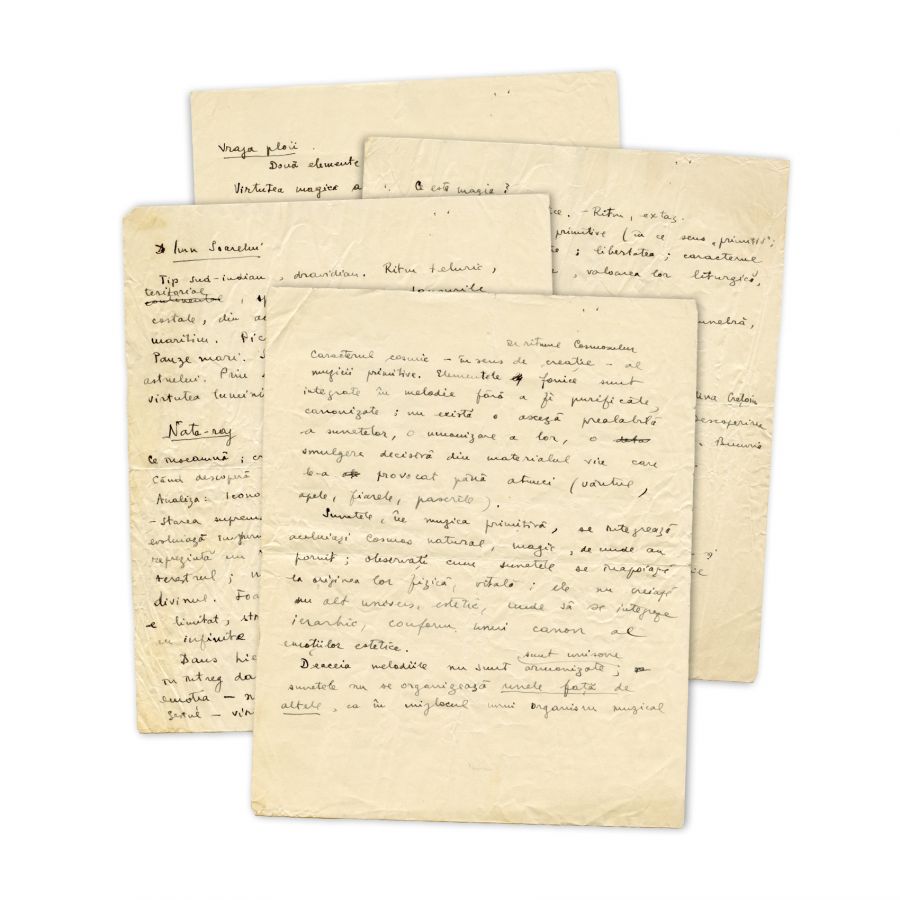 Vraja ploii.
Două elemente
Virtutea magica a
Ce este magie?
ice. - Ritm, extaz.
primitive (în ce sens "primitiv";
te; libertatea; caracterul
, valoarea lor liturgică,
funebră,
descoperirea
Bucuria
Imn Soarelui
Tip sud-indian, dravidian. Ritm teluric,
teritorial
continental,
dansurile
costale, din
maritim.
Pauze mari.
astrului. Prin
virtutea luminii
Nata-raj
Ce înseamnă;
Când descoperă
Analiza:
- Starea supremă
evoluiază împre
un
terestrul;
divinul.
e limitat,
cu infinite
Dans
un întreg
emoția -
Gestul -
de ritmul Cosmosului
Caracterul cosmic - în sens de creație - al
muzicii primitive. Elementele fonice sunt
integrate în melodie fără a fi purificate,
canonizate; nu există o asceză prealabilă
a sunetelor, o umanizare a lor, o
smulgere decisivă din materialul viu care
le-a provocat până atunci (vântul,
apele, fiarele, pasările).
Sunetele, în muzica primitivă, se integrează
aceluiași Cosmos natural, magic, de unde au
pornit; observați cum sunetele se înapoiază
la originea lor fizică, vitală; ele nu creiază
un alt univers, estetic, unde să se integreze
ierarhic, conform unui canon al
emoțiilor estetice.
sunt unisone
Deaceia melodiile nu sunt armonizate;
sunetele nu se organizează unele față de
altele, ca în mijlocul unui organism muzical